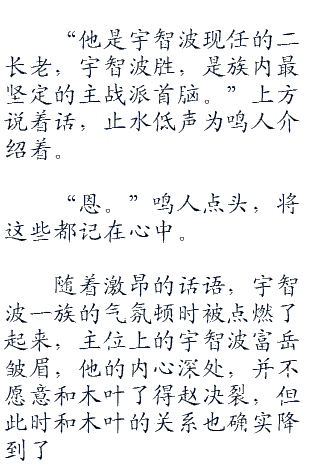 “他是宇智波现任的二
长老，宇智波胜，是族内最
坚定的主战派首脑。”上方
说着话，止水低声为鸣人介
绍着。
“恩。”鸣人点头，将
这些都记在心中。
随着激昂的话语，宇智
波一族的气氛顿时被点燃了
起来，主位上的宇智波富岳
皱眉，他的内心深处，并不
愿意和木叶了得赵决裂，但
此时和木叶的关系也确实降
到了